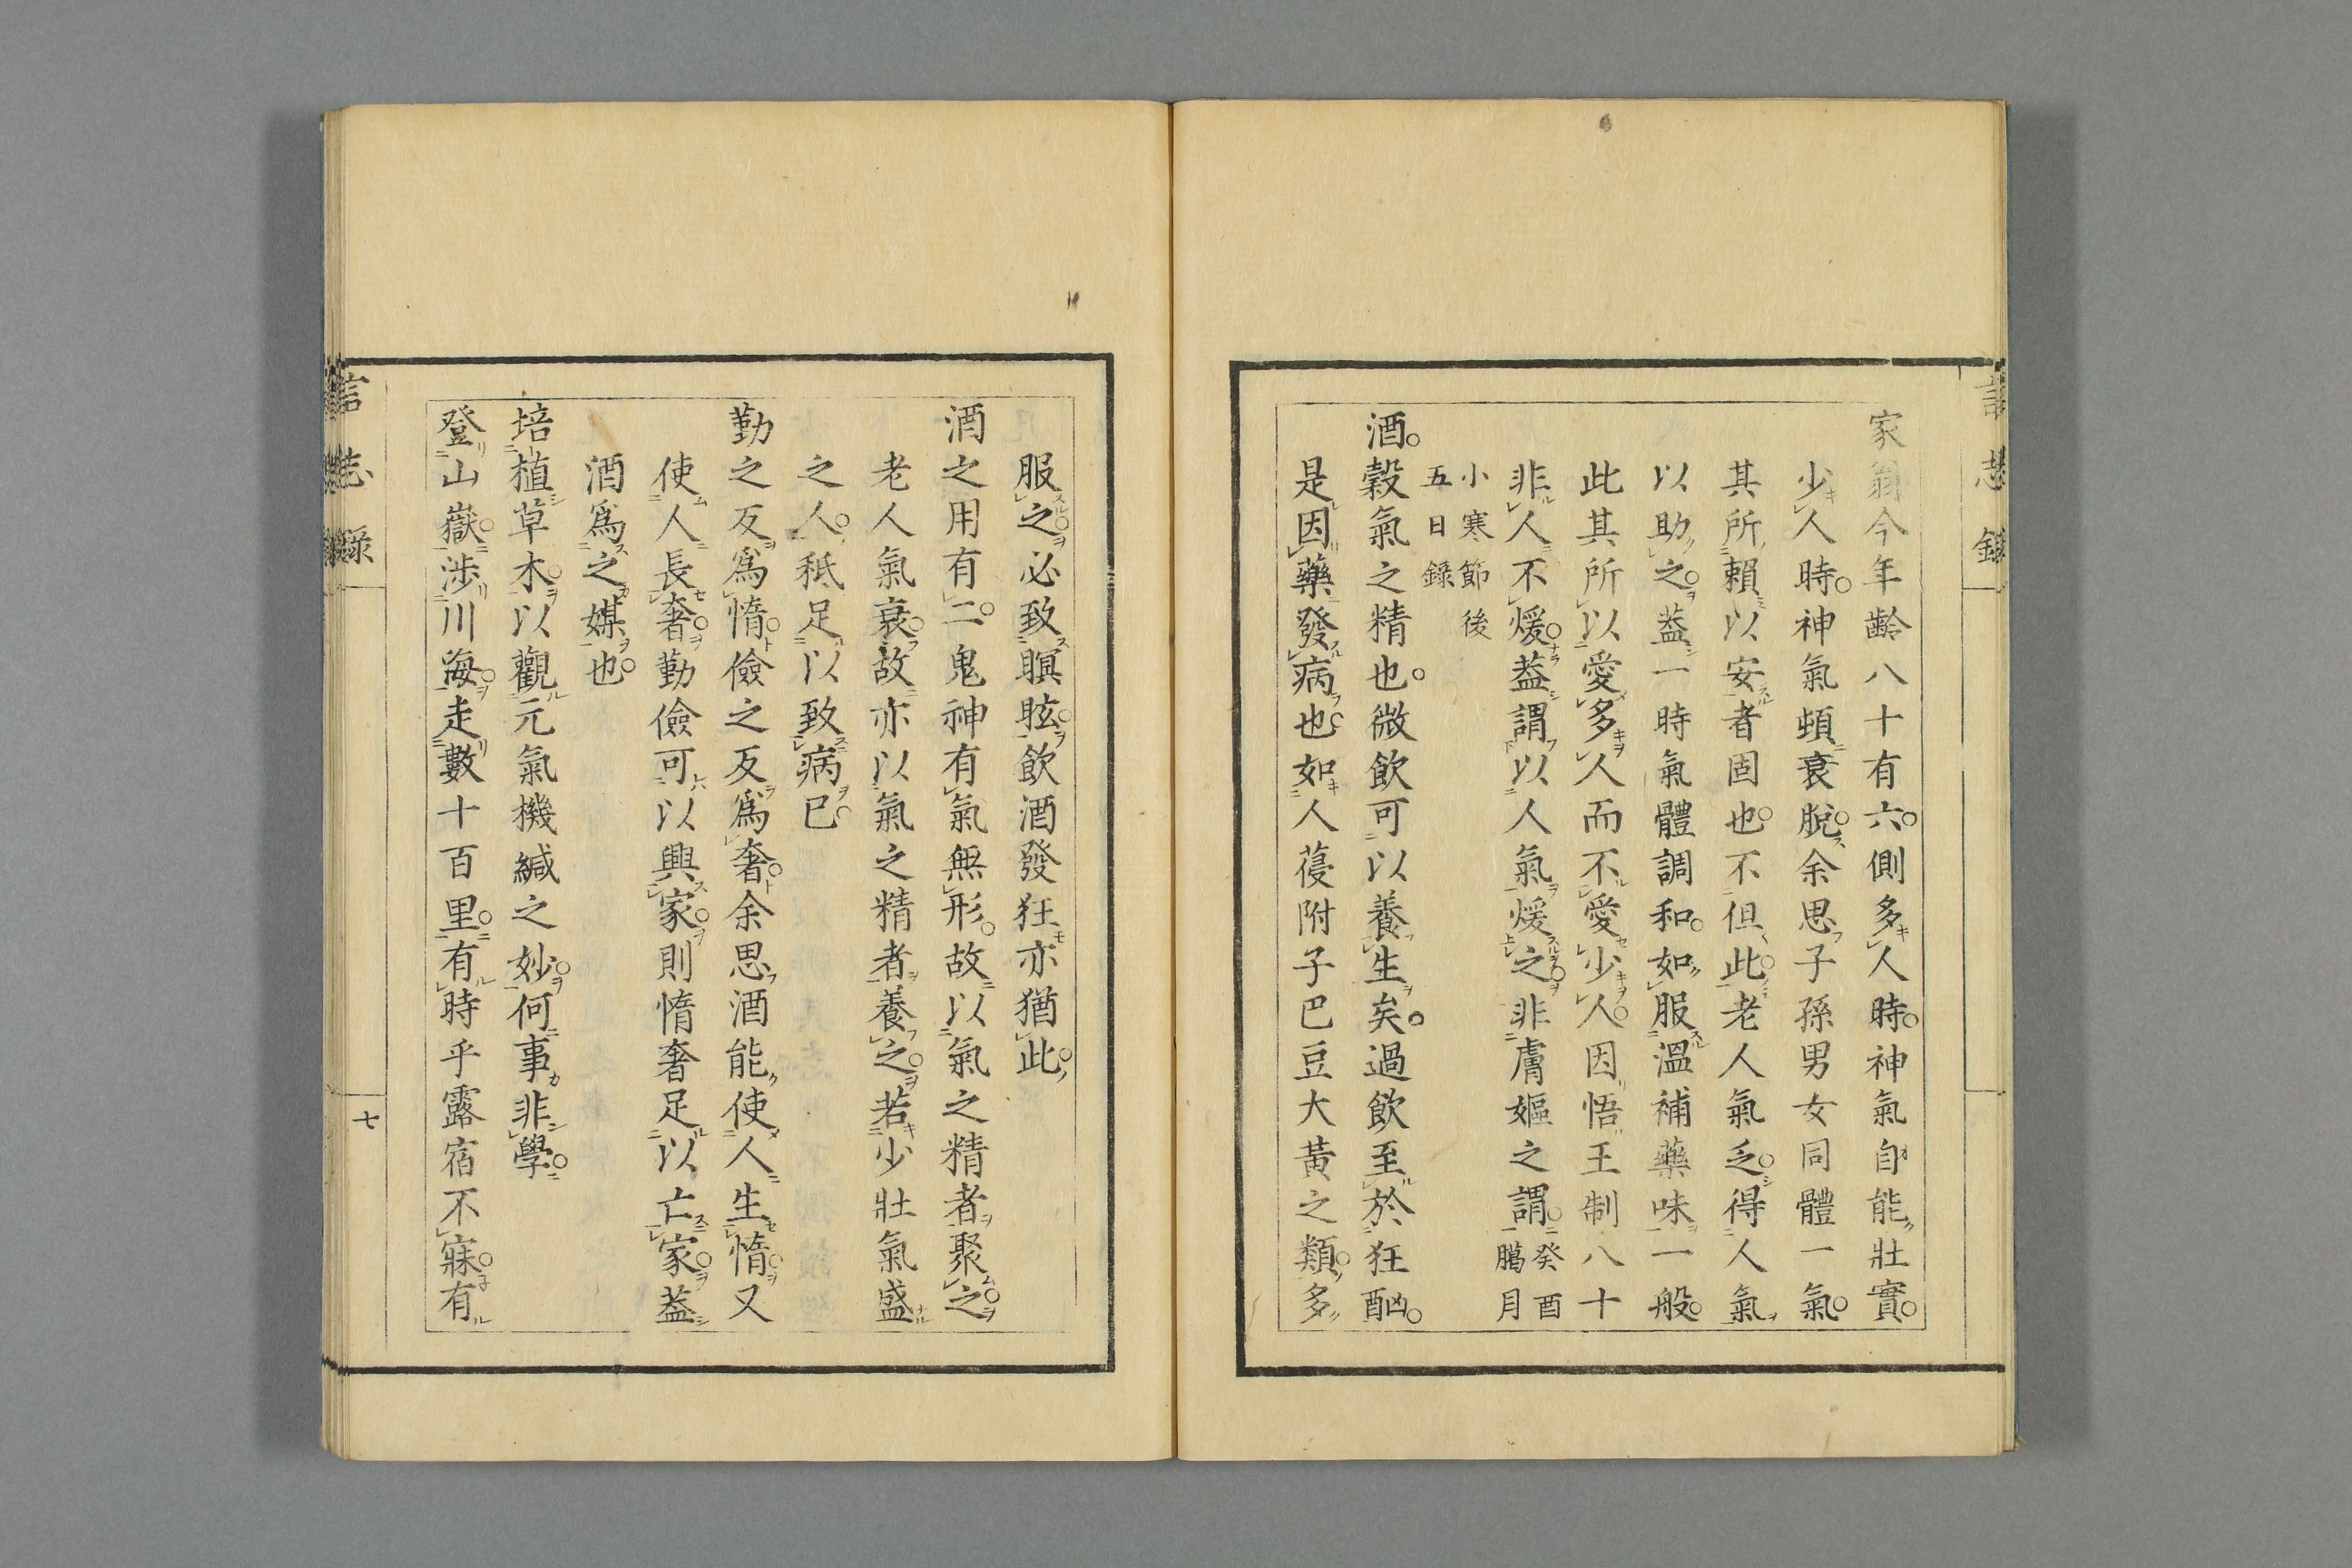 言志錄
家翁今年齡八十有六。側多人時。神氣自能壯實。
少人時。神氣頓衰脫。余思子孫男女同體一氣。
其所賴以安者固也。不但此。老人氣乏。得人氣
以助之。葢一時氣體調和。如服溫補藥味一般。
此其所以愛多人而不愛少人。因悟王制八十
非人不煖。葢謂以人氣煖之。非膚嫗之謂。癸酉臈月
小寒節後五日錄
酒。穀氣之精也。微飮可以養生矣。過飮至於狂酗。
是因藥發病也。如人葠附子巴豆大黃之類。多
服之。必致瞑眩。飮酒發狂亦猶此。
酒之用有二。鬼神有氣無形。故以氣之精者聚之。
老人氣衰。故亦以氣之精者養之。若少壯氣盛
之人。秖足以致病已。
勤之反爲惰。儉之反爲奢。余思酒能使人生惰。又
使人長奢。勤儉可以興家。則惰奢足以亡家。葢
酒爲之媒也。
培植草木。以觀元氣機緘之妙。何事非學。
登山嶽。涉川海。走數十百里。有時乎露宿不寐。有
言志錄
七